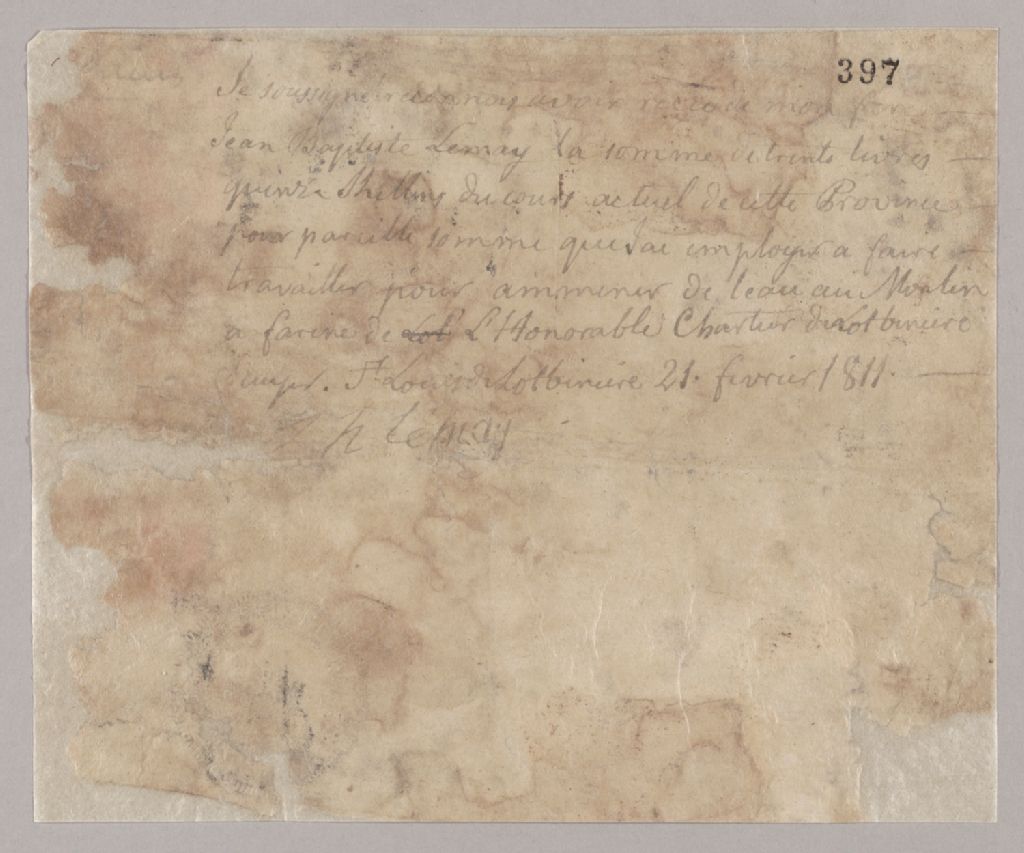 397
Je soussigné reconnois avoir recu de mon
Jean Baptiste Lemay la somme de trente livres
quinze Shellins du cours actuel de cette Province
pour pareille somme que Jai employer a faire
travailler pour ammener de leau au Moulin
a farine de L'Honorable Chartier de Lotbiniere
Ecuyer. St Louis de Lotbiniere 21. fevrier 1811.
h lémay